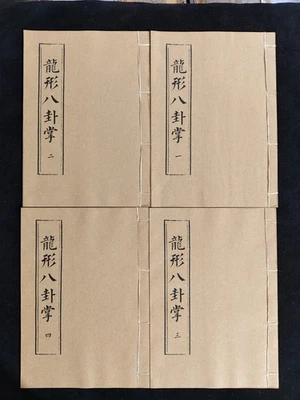 龍形八卦掌 一
龍形八卦掌 二
龍形八卦掌 三
龍形八卦掌 四